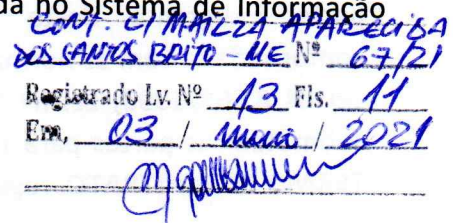 da no Sistema de Informação
CONT. C/ MAILZA APARECIDA
DOS SANTOS BRITO - ME Nº 67/21
Registrado Lv. Nº 13 Fls. 11
Em, 03 / maio / 2021